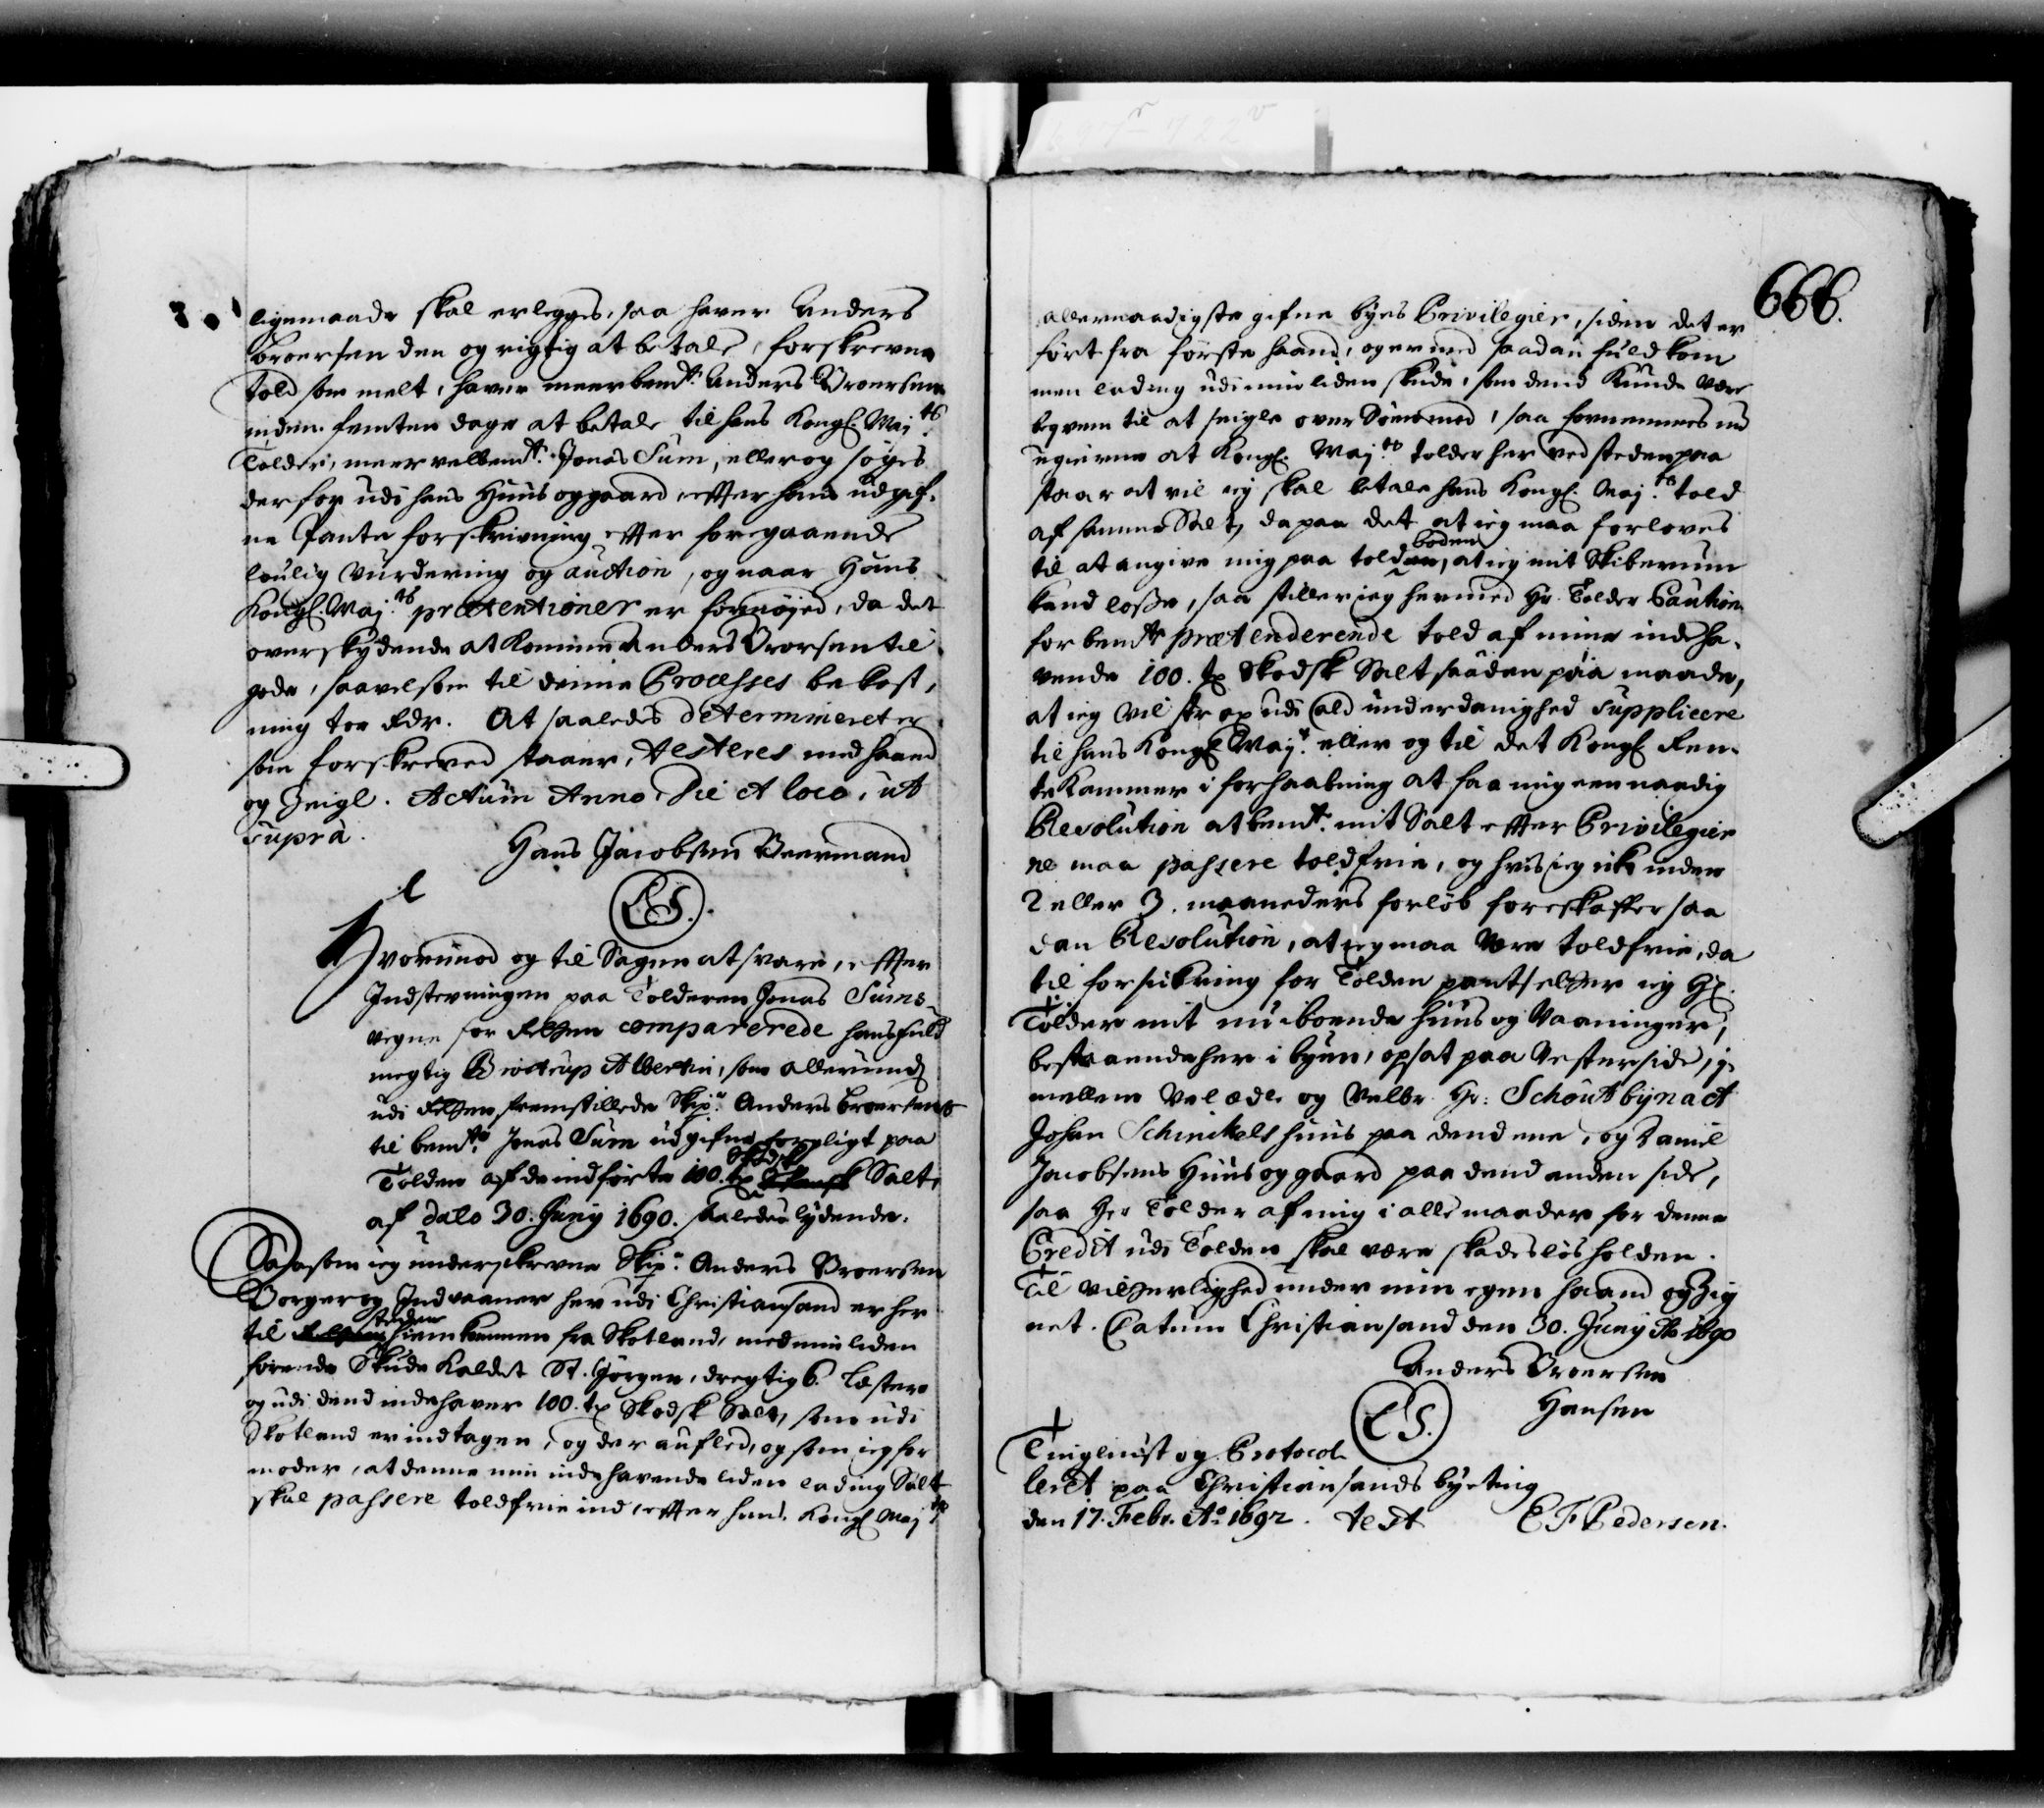 ligemaade skal erlegges, saa haver Anders
Broersen den og rigtig at betale, forskrevne
told som melt, haver meerbemte: Anders Broersen
inden femten dage at betale til hans Kongl: Maj:ts
Tolder, meer velbemte: Jonas Sum, eller og söges
derfor udi hans Huus og gaard, effter hans udgif-
ne Pante forskrivning effter foregaaende
loulig vurdering og auction, og naar Hans
Kongl: Maj:ts prætentioner er fornöjed, da det
overskydende at komme Anders Brorsen til
gode, saavel som til denne Processes bekost-
ning toe Rdr. At saaledes determineret er
som forskreved staaer, testeres med haand
og Zeigl. Actum Anno, die et loco, ut
supra.
Hans Jacobsen Beermand
LS.
Hvorimod og til Sagen at svare, effter
Indstevningen paa Tolderen Jonas Sums
vegne for Retten comparerede hans fuld
megtig Albertin, som allerund
udi Retten fremstillede Skip:r Anders Broersens
til bemte: Jonas Sum udgifne forpligt paa
Skodsk
Tolden af de indförte 100. tr Salt,
af dato 30. Junij 1690. saaledes lydende.
Saasom ieg underskrevne Skip:r Anders Broersen
Borger og Indvaaner her udi Christiansand er her
steden
til Retten hiemkommen fra Skotland, med min liden
förende Skude kaldet St. Jörgen, dregtig 6. Lester
og udi dend indehaver 100. tr Skodsk Salt, som udi
Skotland er indtagen, og der aufled, og som ieg for
moder, at denne min indehavende liden lading Salt
skal passere toldfrie ind, effter hans Kongl Maj:ts
666.
allernaadigste gifne byes Privilegier, siden det er
fört fra förste haand, og er med saadan fuldkom
men lading udi min liden skude, som dend kunde være
beqvem til at seigle over Söen med, saa fornemmes nu
ugierne at Kongl: Maj:ts tolder her ved steden paa
staar at vil ieg skal betale hans Kongl: Maj:ts told
af samme Salt, da paa det at ieg maa forloves
boden
til at angive mig paa tolden, at ieg mit Skiberum
kand losse, saa stiller ieg hermed Hr. Tolder Caution
for bemte prætenderende told af mine indeha-
vende 100. tr Skodsk Salt saadan paa maade,
at ieg vil strax udi ald underdanighed supplicere
til hans Kongl Maj:t eller og til det Kongl Ren-
te Kammer i forhaabning at faa mig een naadig
Resolution at bemte: mit Salt effter Privilegier
ne maa passere toldfrie, og hvis ieg icke inden
2 eller 3. maaneders forlöb foreskaffer saa
dan Resolution, at ieg maa være toldfrie, da
til forsickring for Tolden pantsetter ieg Hr.
Tolder mit nu iboende huus og Vaaninger,
bestaaende her i byen, opsat paa Vesterside, i-
mellem Vel ædle og Velbr. Hr: Schoutbynact
Johan Schinkels huus paa dend ene, og Daniel
Jacobsens Huus og gaard paa dend anden side,
saa Her Tolder af mig i alle maader for denne
Credit udi Tolden skal være skadeslös holden.
Til vitterlighed under min egen haand og Zig
net. Datum Christiansand den 30. Junij Ao 1690
Anders Broersen
Hansen
LS.
Tinglæst og Protocol
leret paa Christiansands byeting
den 17. Febr. Ao 1692. test E F Pedersen.